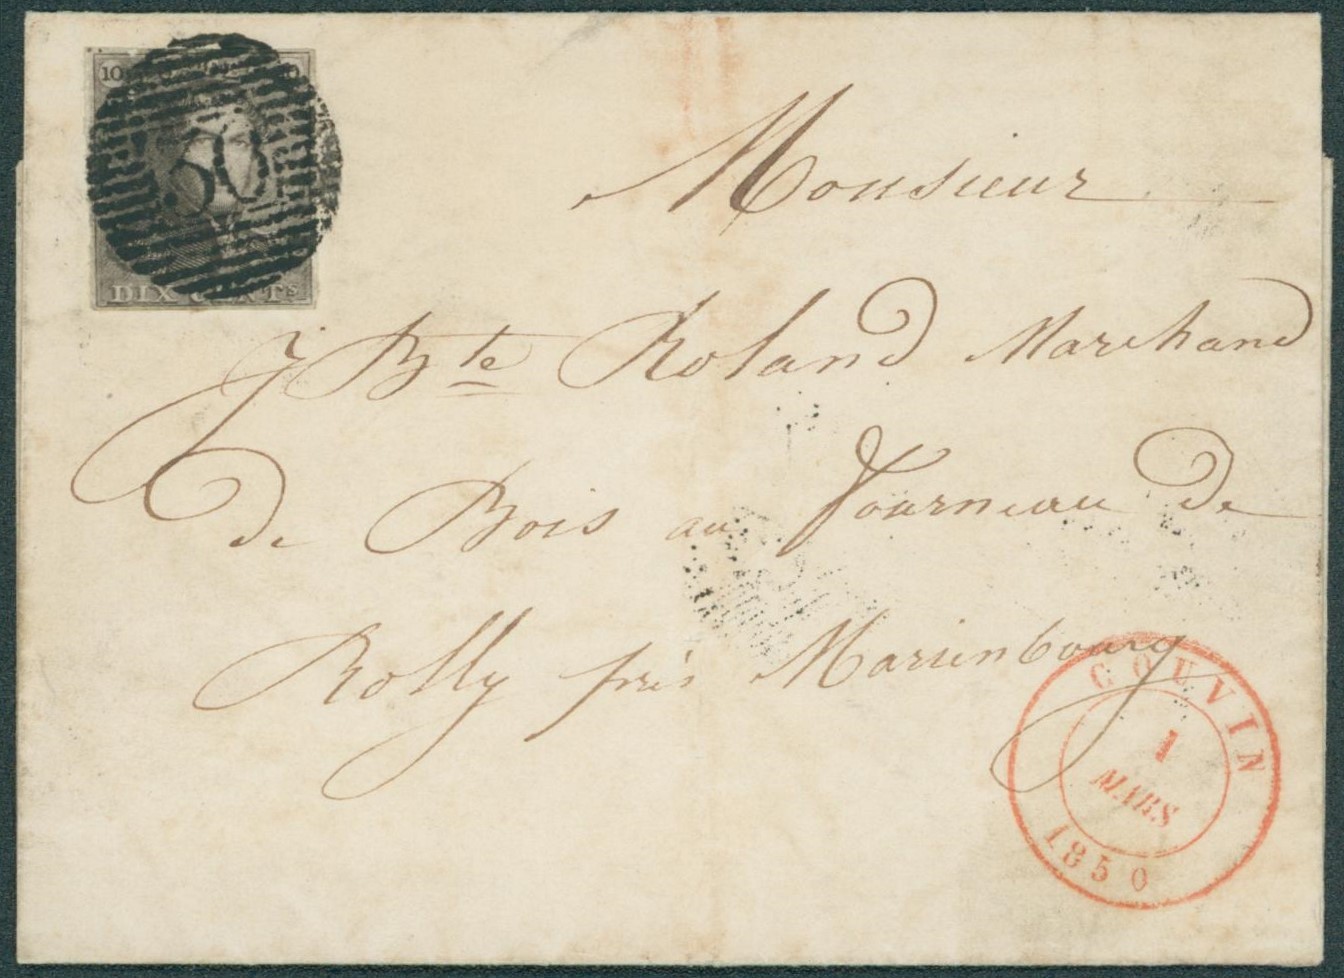 10
30
DIX CENTs
Monsieur
J Bte Roland Marchand
de Bois au fourneau de
Rolly près Marienbourg
COUVIN
1
MARS
1850